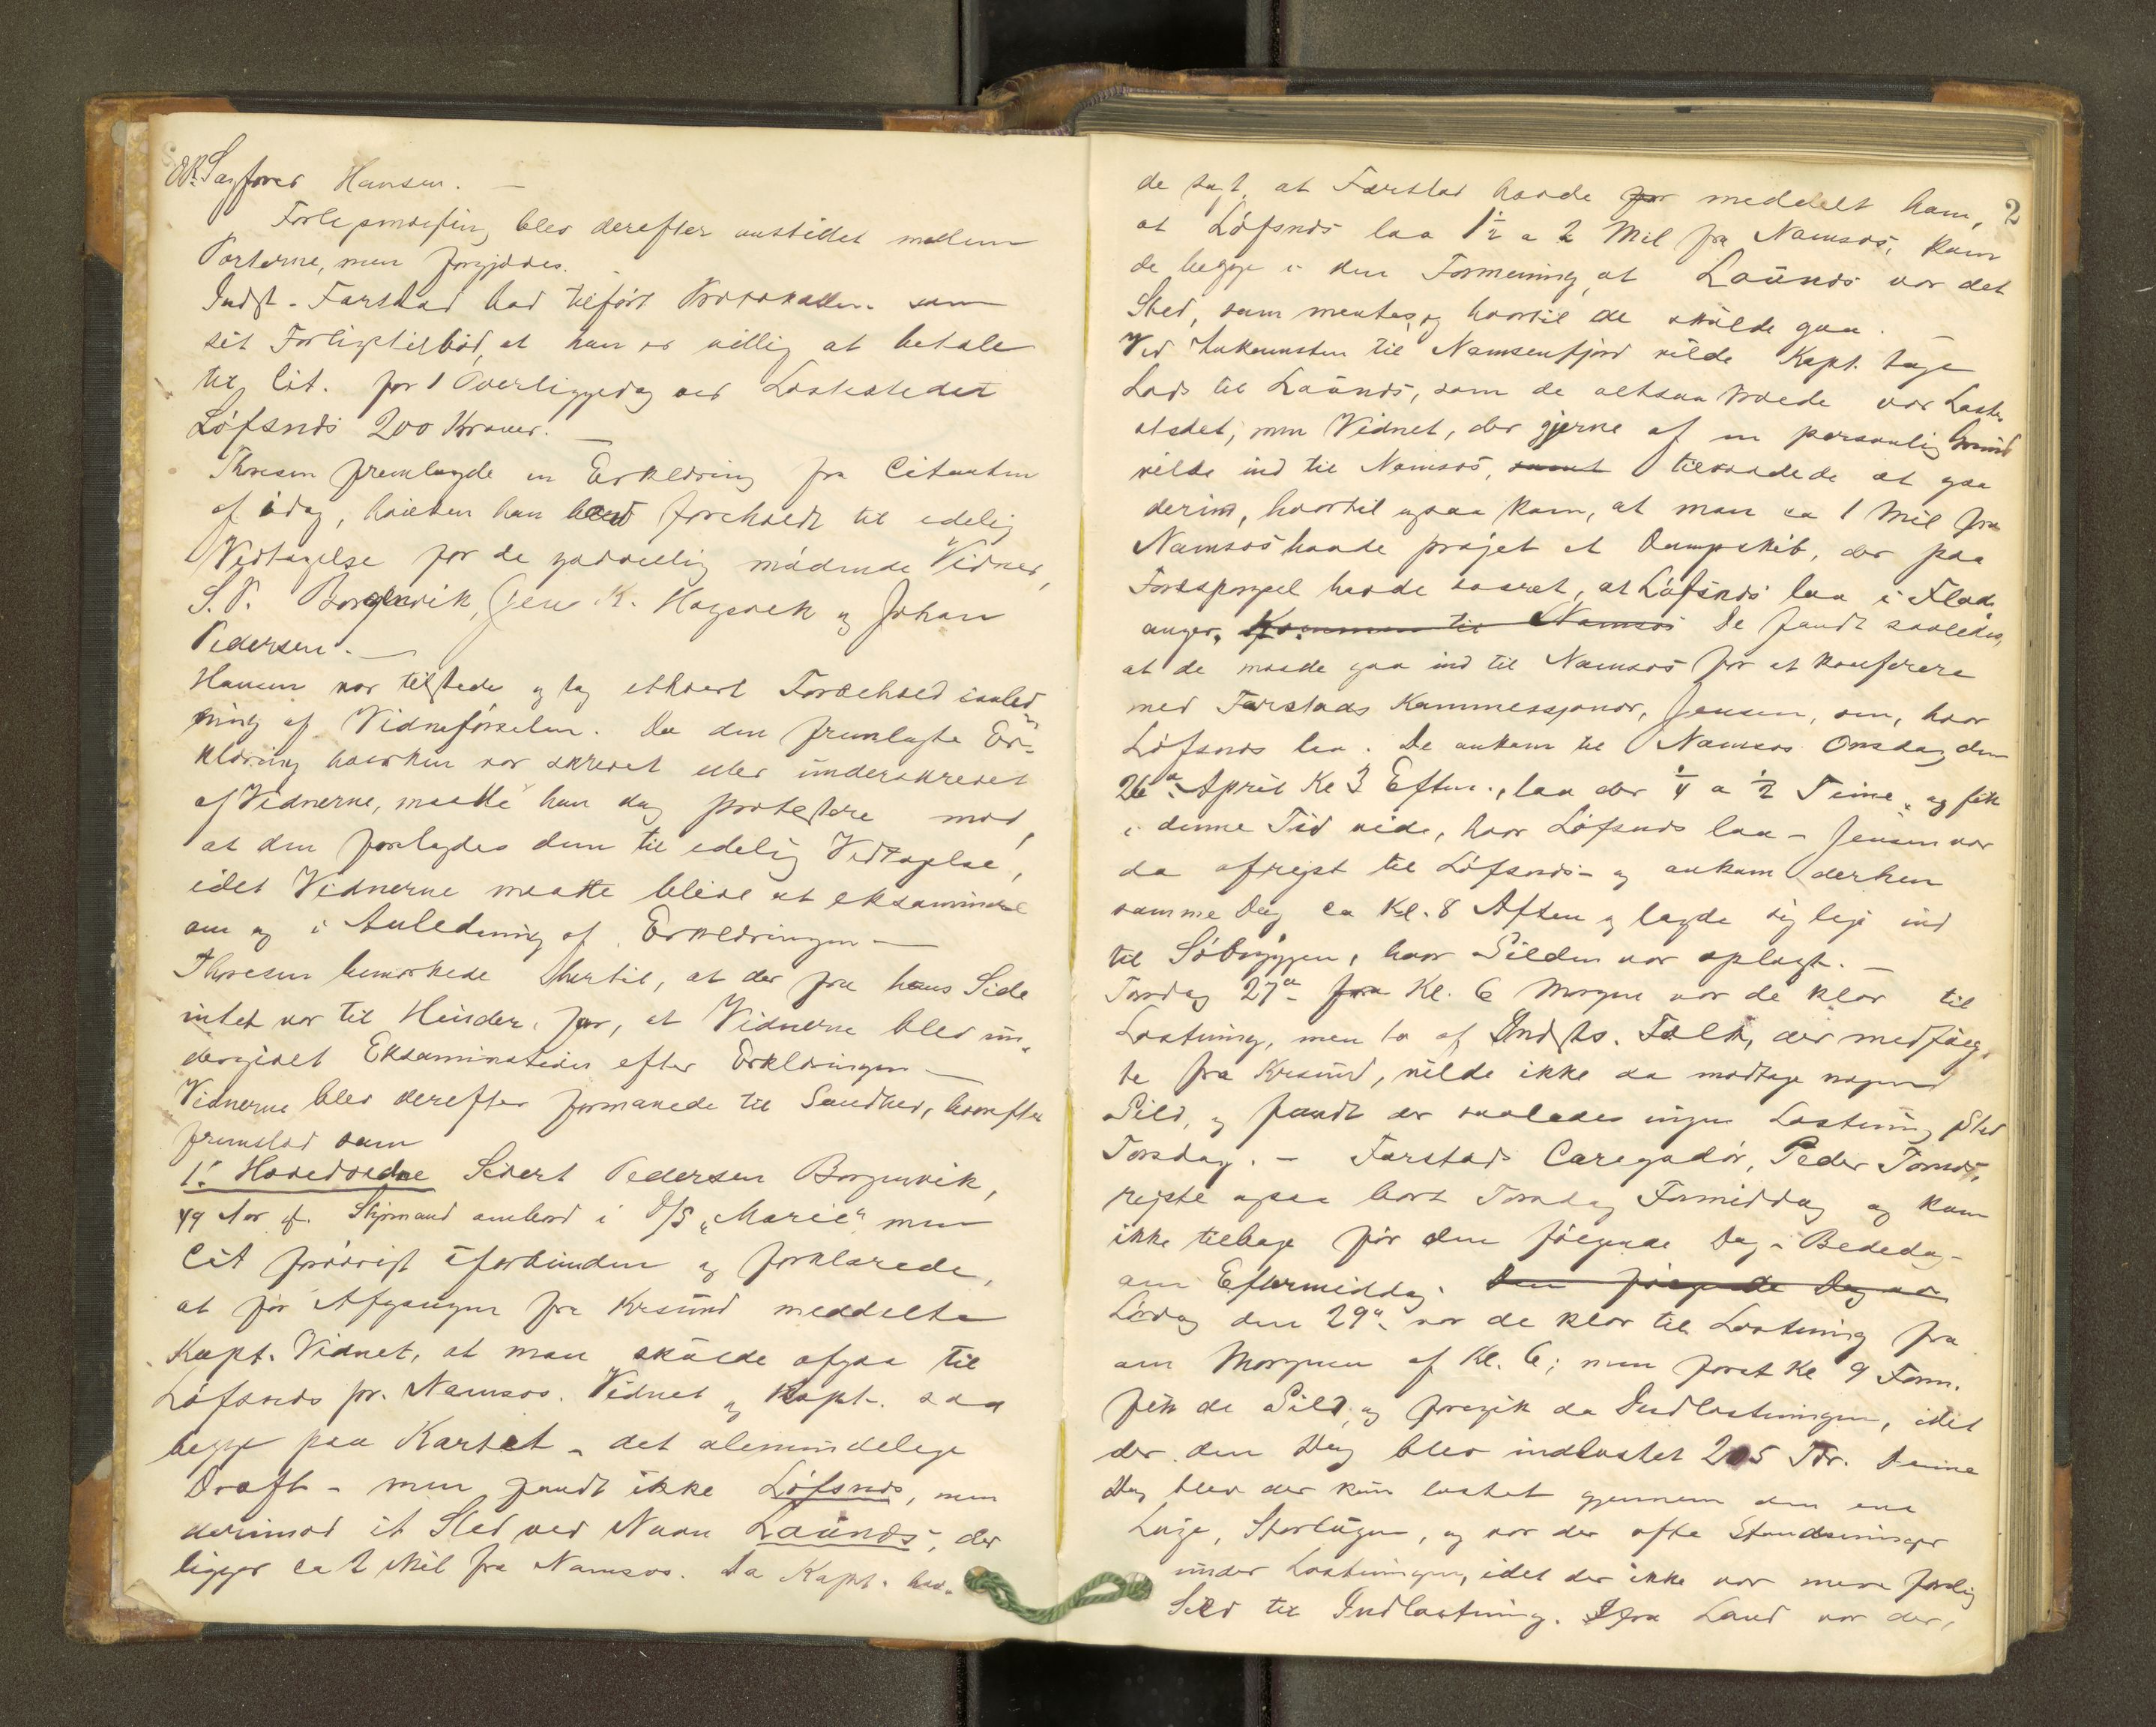 OR. Sagfører Hansen. —
Forligsmægling blev derefter anstillet mellem
Parterne, men forgjæves.
Indst. Farstad bad tilført Protokollen som
sit Forligstilbød, at han er villig at betale
til Cit. for 1 Overliggedag ved Lastestedet
Löfsnæs 200 Kroner. —
Thoresen fremlagde en Erklæring fra Citanten
af idag, hvilken han bad foreholdt til edelig
Vedtagelse for de godvillig mødende Vidner,
S. P. Borgenvik, Jens K. Hagsvik og Johan
Pedersen. —
Hansen var tilstede og tog ethvert Forbehold i anled-
ning af Vidneførselen. Da den fremlagte Er-
klæring hverken var skrevet eller underskrevet
af Vidnerne, maatte han dog protestere mod,
at den forelagdes dem til edelig Vedtagelse,
idet Vidnerne maatte blive at eksaminere
om og i Anledning af Erklæringen —
Thoresen bemærkede hertil, at der fra hans Side
intet var til Hinder for, at Vidnerne blev un-
dergivet Eksamination efter Erklæringen —
Vidnerne blev derefter formanede til Sandhed, hvorefter
fremstod som
1. Hovedvidne Sivert Pedersen Borgenvik,
49 Aar gl. Styrmand ombord i D/S "Marie" men
Cit forøvrigt uforbunden og forklarede,
at før Afgangen fra Krsund meddelte
Kapt. Vidnet, at man skulde afgaa til
Löfsnæs pr. Namsos. Vidnet og Kapt. saa
begge paa Kartet - det almindelige
Draft - men fandt ikke Löfsnæs, men
derimod et Sted ved Navn Launæs, der
ligger ca 2 Mil fra Namsos. Da Kapt. hav-
2
de sagt, at Farstad havde for meddelt ham,
at Löfsnæs laa 1½ a 2 Mil fra Namsos, kom
de begge i den Formening, at Launæs var det
Sted, som mentes, og hvortil de skulde gaa. —
Ved Ankomsten til Namsenfjord vilde Kapt. tage
Lods til Launæs, som de altsaa troede var Laste-
stedet, men Vidnet, der gjerne af en personlig Grund
vilde ind til Namsos, samt tilraadede at gaa
derind, hvortil ogsaa kom, at man ca 1 Mil fra
Namsos havde prajet et Dampskib, der paa
Forespørgsel havde svaret, at Löfsnæs laa i Flad-
anger. Kommen til Namsos De fandt saaledes,
at de maatte gaa ind til Namsos for at konferere
med Farstads Kommissjonær, Jensen, om, hvor
Löfsnæs laa. De ankom til Namsos Onsdag den
26de April Kl 3 Efterm., laa der ¼ a ½ Time, og fik
i denne Tid vide, hvor Löfsnæs laa - Jensen var
da afrejst til Löfsnæs - og ankom derhen
samme Dag ca Kl. 8 Aften og lagde sig lige ind
til Söbryggen, hvor Silden var oplagt. —
Torsdag 27de fra Kl. 6 Morgen var de klar til
Lastning, men to af Indsts. Folk, der medfulg-
te fra Krsund, vilde ikke da modtage nogen
Sild, og fandt der saaledes ingen Lastning Sted
Torsdag. — Farstads Caregadör, Peder Tornæs,
rejste ogsaa bort Torsdag Formiddag og kom
ikke tilbage før den følgende Dag - Bededag -
om Eftermiddag. Den følgende Dag var
Lördag den 29de var de klar til Lastning fra
om Morgenen af Kl. 6; men først Kl 9 Form.
fik de Sild, og foregik da Indlastningen, idet
der den Dag blev indlastet 205 Tdr. Denne
Dag blev der kun lastet gjennem den ene
Luge, Storlugen, og var der ofte Standsninger
under Lastningen, idet der ikke var mere færdig
Sild til Indlastning. Fra Land var der,